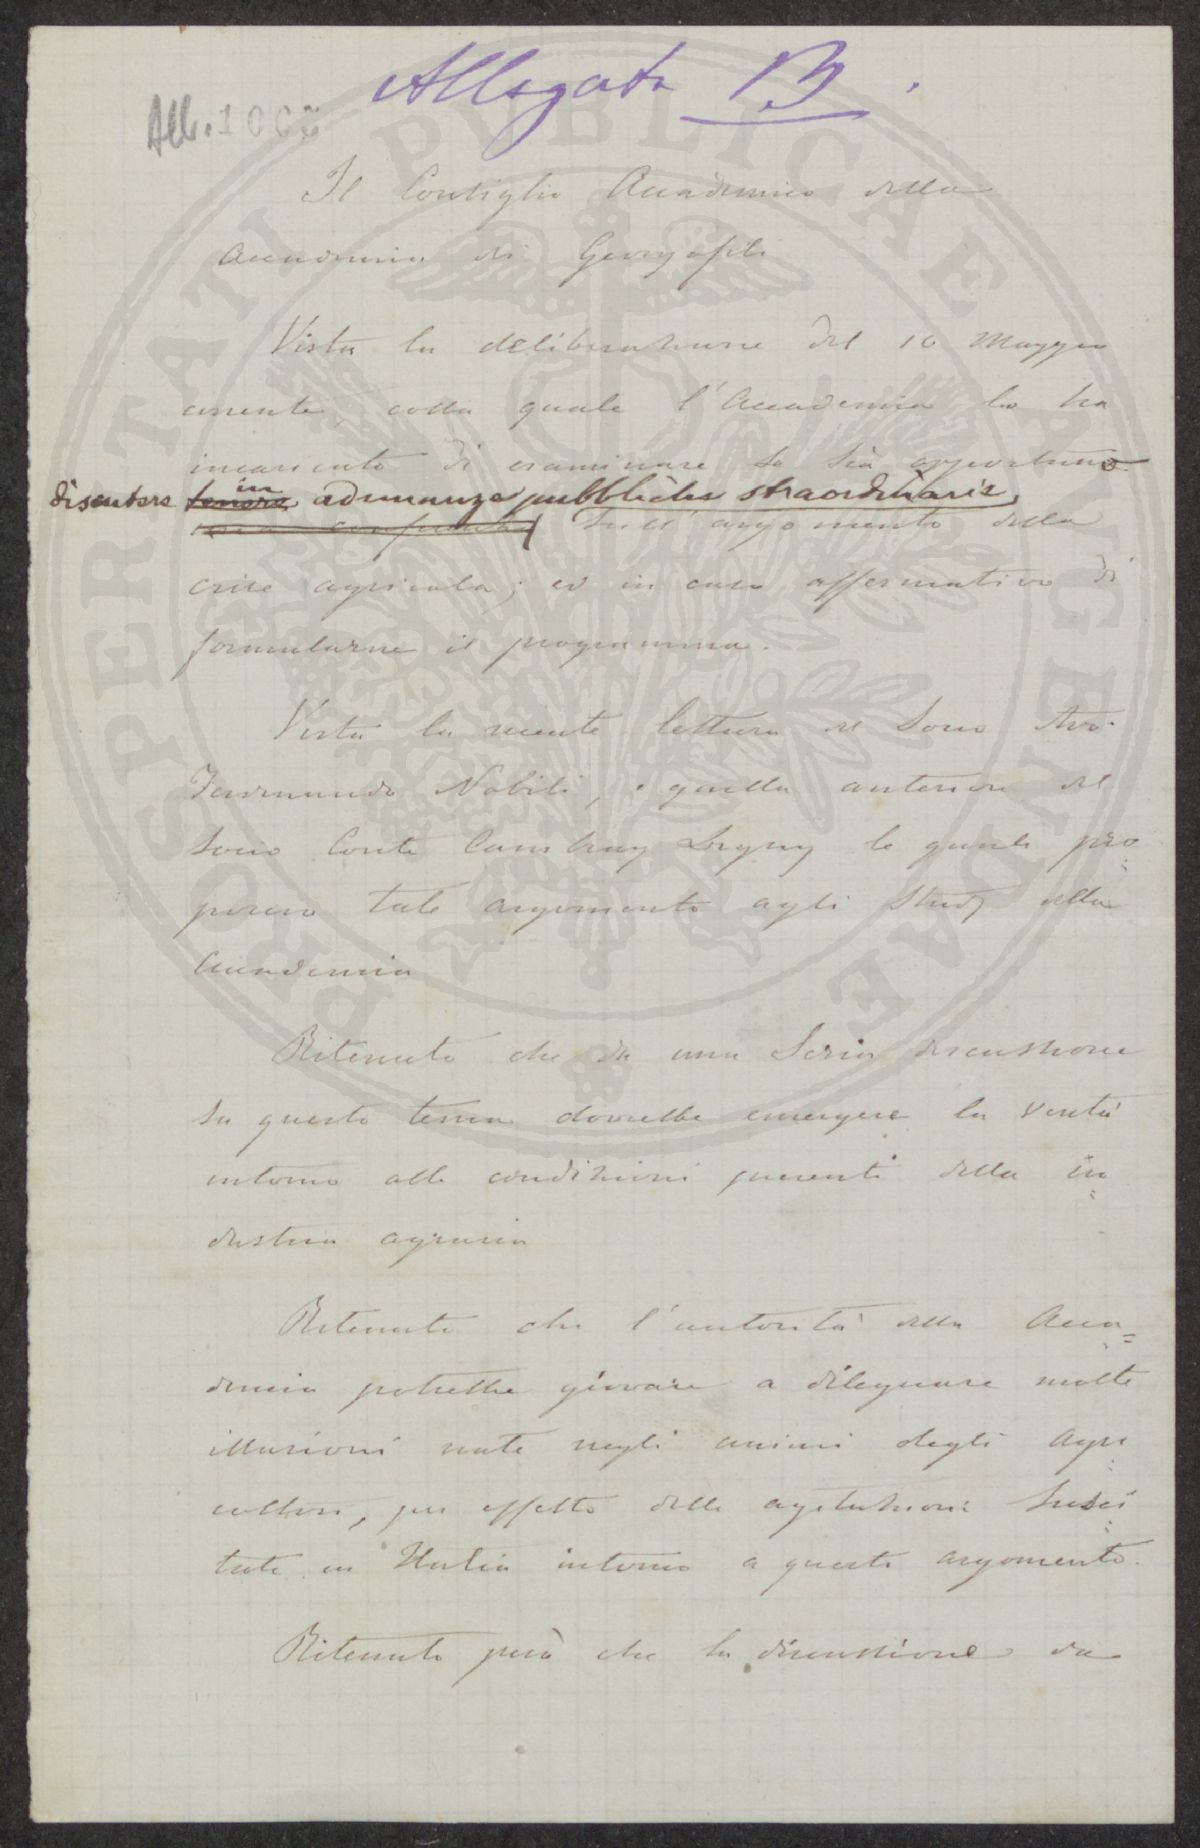 Allegato B.
All. 100
Il Consiglio Accademico della
Accademia di Georgofili
Vista la deliberazione del 10 Maggio
corrente, colla quale l'Accademia lo ha
incaricato di esaminare se sia opportuno
discutere tenere in adunanze pubbliche straordinarie,
una conferenza sull'argomento della
crise agricola; ed in caso affermativo di
formularne il programma.
Vista la recente lettura del Socio Avv.
Ferdinando Nobili, e quella anteriore del
Socio Conte Cambray Digny le quali pro
posero tale argomento agli studj della
Accademia
Ritenuto che da una seria discussione
su questo tema dovrebbe emergere la verità
intorno alle condizioni presenti della in
dustria agraria
Ritenuto che l'autorità della Acca=
demia potrebbe giovare a dileguare molte
illusioni nate negli animi degli agri
coltori, per effetto delle agitazioni susci
tate in Italia intorno a questo argomento.
Ritenuto però che la discussione da
PROSPERITATI PUBLICAE AUGENDAE